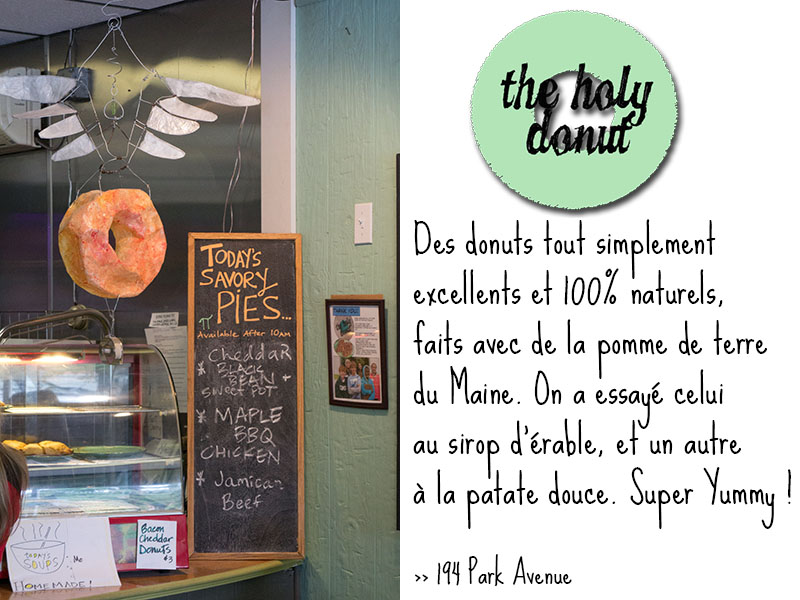 TODAY'S
SAVORY
PIES...
π
Available After 10AM
Cheddar
* BLACK
BEAN +
SWEET POT
* MAPLE
BBQ
CHICKEN
* Jamican
Beef
THANK YOU!
TODAY'S
SOUPS
HOMEMADE!
Bacon
Cheddar
Donuts
$3
the holy
donut
Des donuts tout simplement
excellents et 100% naturels,
faits avec de la pomme de terre
du Maine. On a essayé celui
au sirop d'érable, et un autre
à la patate douce. Super Yummy !
>> 194 Park Avenue